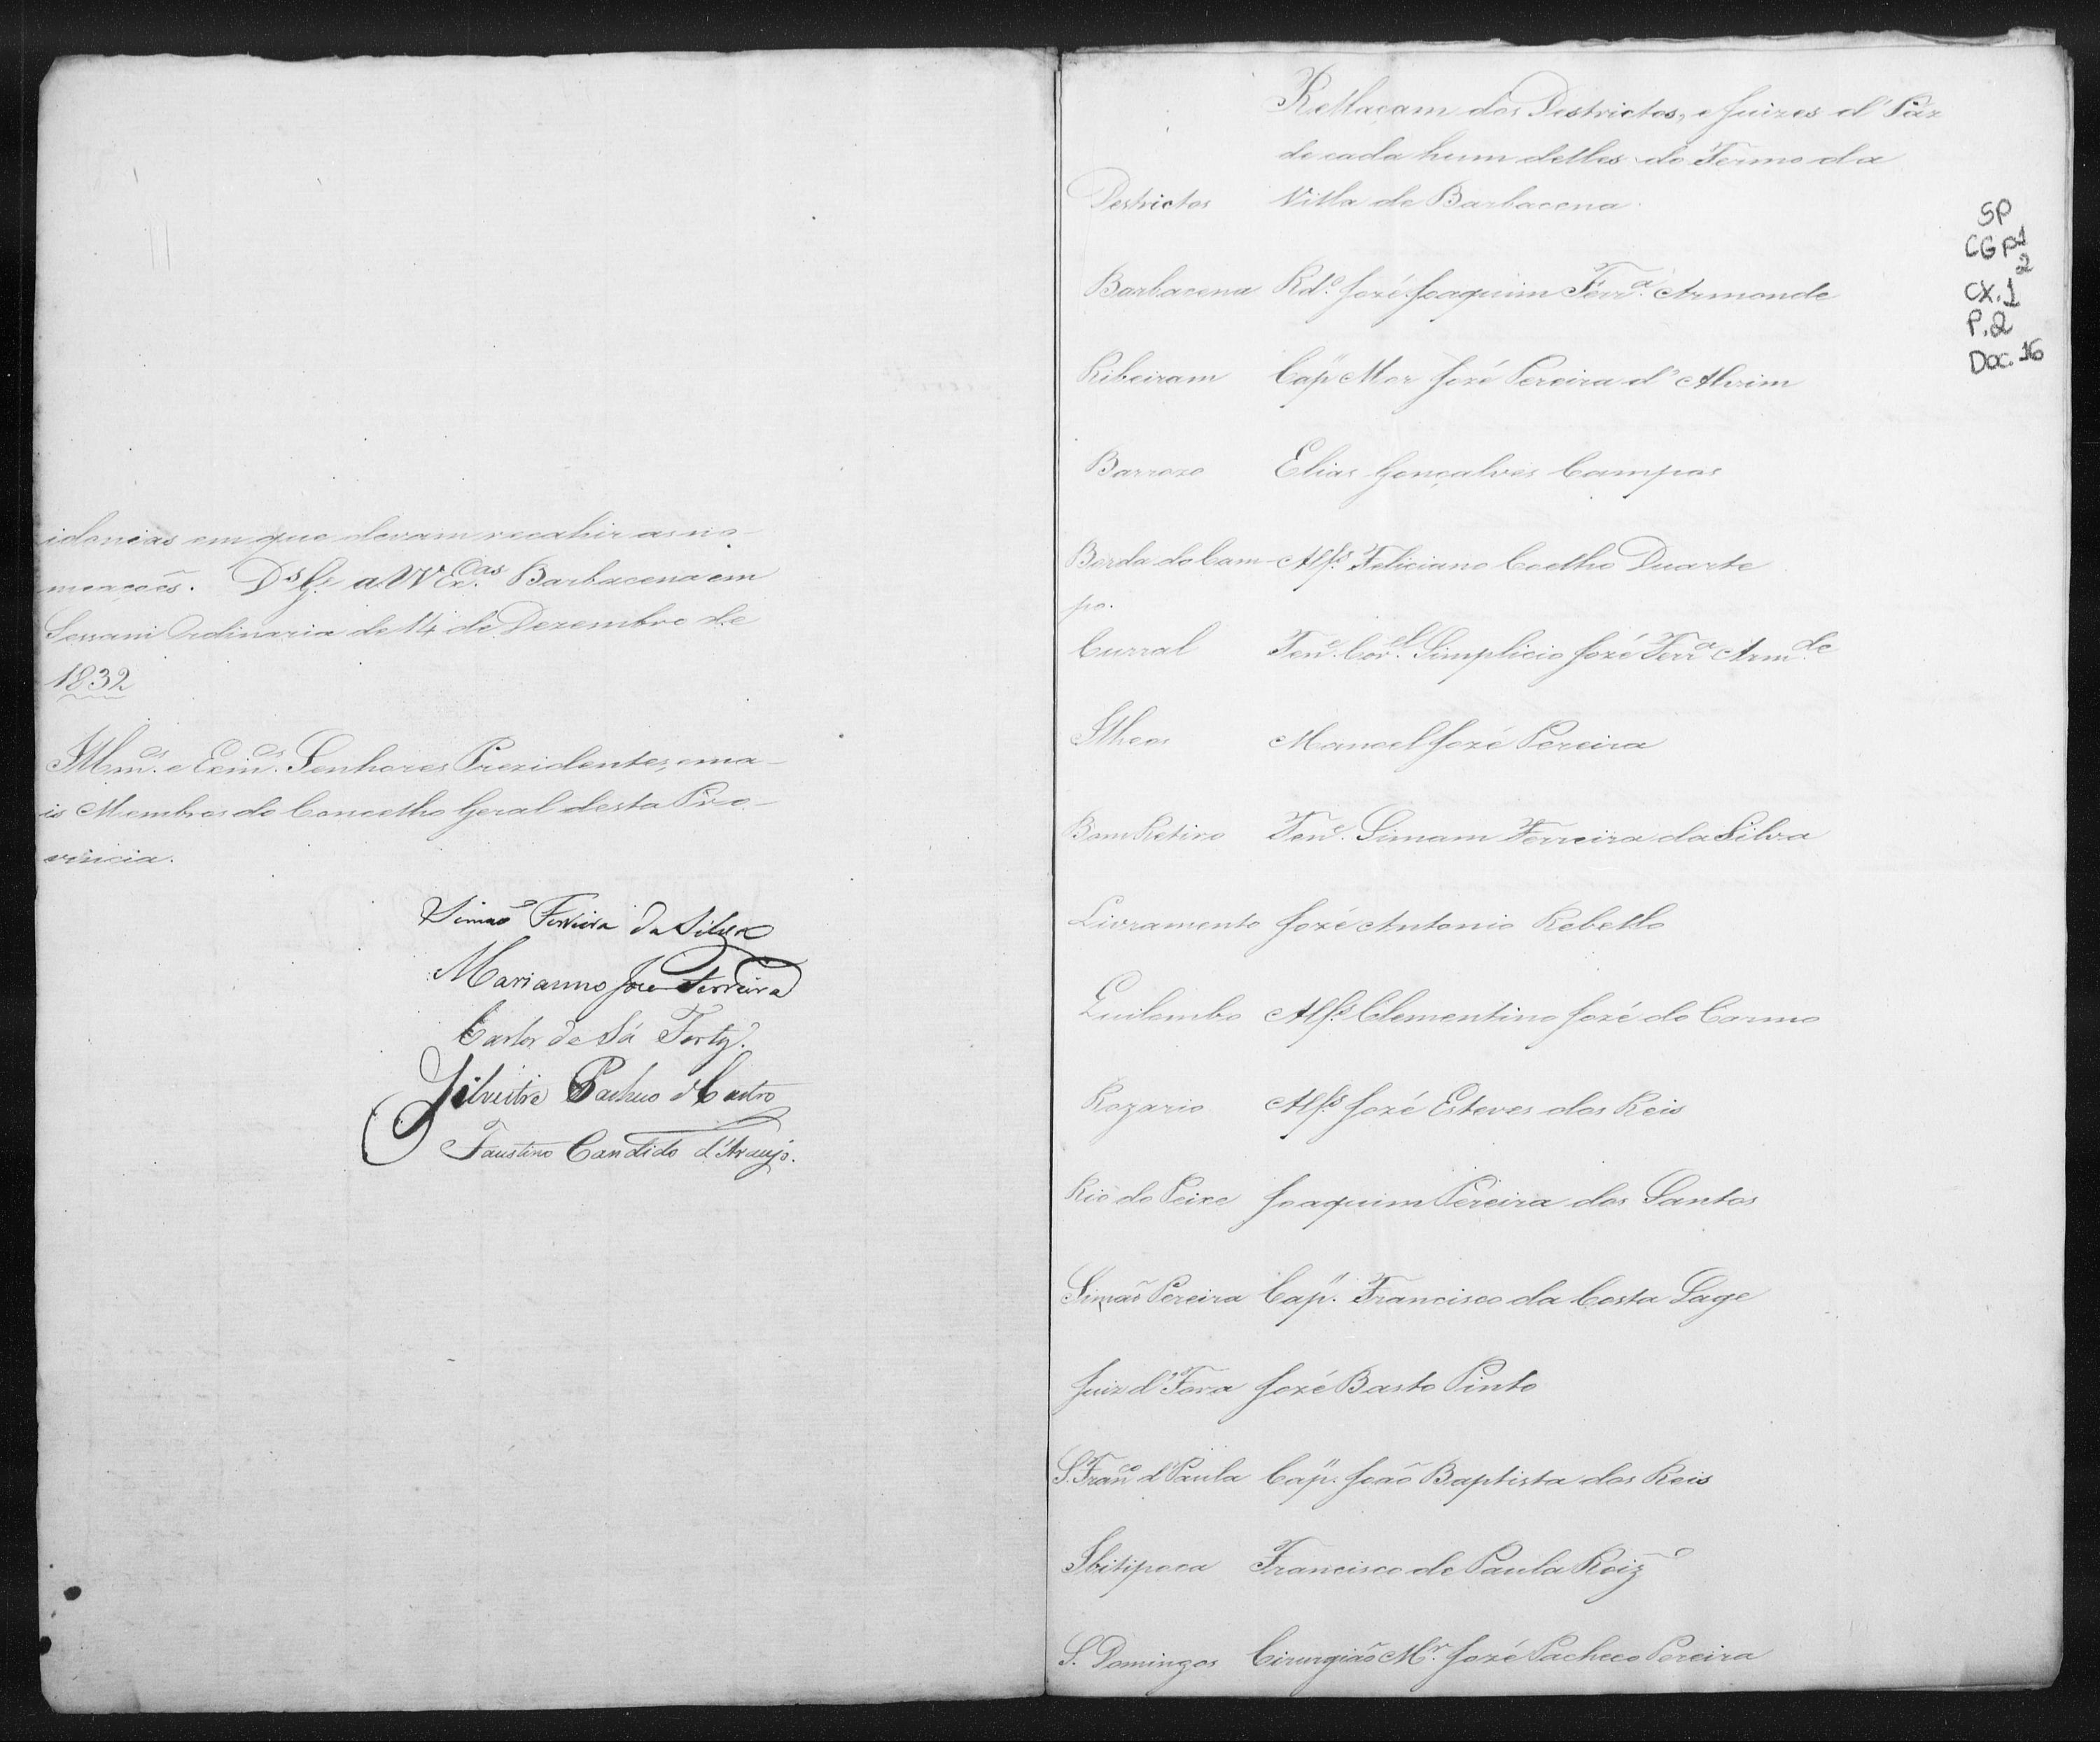 idonias em que devam recahir as no-
meaçoẽs. D.s G.e a VV Ex.cas Barbacena em
Sessam Ordinaria de 14 de Dezembro de
1832
Illm.os e Exm.os Senhores Prezidentes, e ma-
is Membros do Concelho Geral desta Pro-
vincia.
Simaõ Ferreira da Silva
Marianno José Ferreira
Carlos de Sá Fortes
Silvestre Pacheco d Castro
Faustino Candido d'Araujo.
Rellaçam dos Destrictos, e Juizes d'Paz
de cada hum delles do Termo da
Destrictos Villa de Barbacena
SP
CGP1
2
CX.1
P.2
Doc. 16
Barbacena Rd.o José Joaquim Ferr.a Armonde
Ribeiram Cap.m Mor José Pereira d'Alvim
Barrozo Elias Gonçalves Campos
Borda do Cam- Alf.s Feliciano Coelho Duarte
po.
Curral Ten.e Cor.el Simplicio José Ferr.a Arm.de
Ilheos Manoel José Pereira
Bom Retiro Ten.e Simam Ferreira da Silva
Livramento José Antonio Rebello
Quilombo Alf.s Clementino José do Carmo
Rozario Alf.s José Esteves dos Reis
Rio do Peixe Joaquim Pereira dos Santos
Simaõ Pereira Cap.m Francisco da Costa Lage
Juiz d'Fora José Basto Pinto
S. Fran.co d'Paula Cap.m Joaõ Baptista dos Reis
Ibitipoca Francisco de Paula Roiz
S. Domingos Cirurgiaõ M.r José Pacheco Pereira